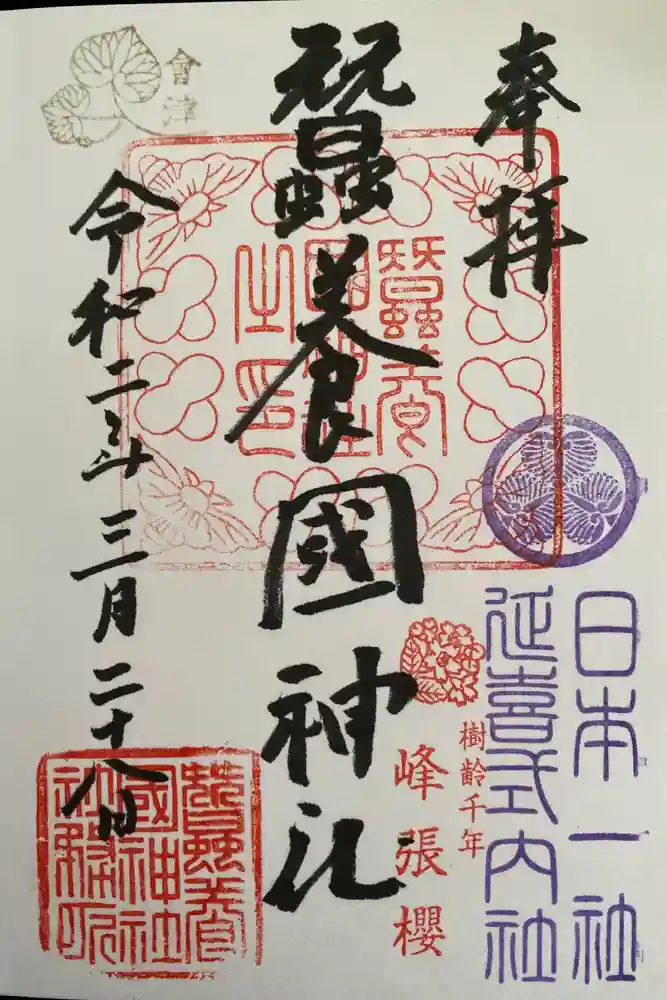 奉拝
日本一社
延喜式内社
樹齢千年
峰張櫻
蠶養國神社
蠶養
國神社
之印
會津
令和二年三月二十八日
蠶養
國神社
社務所